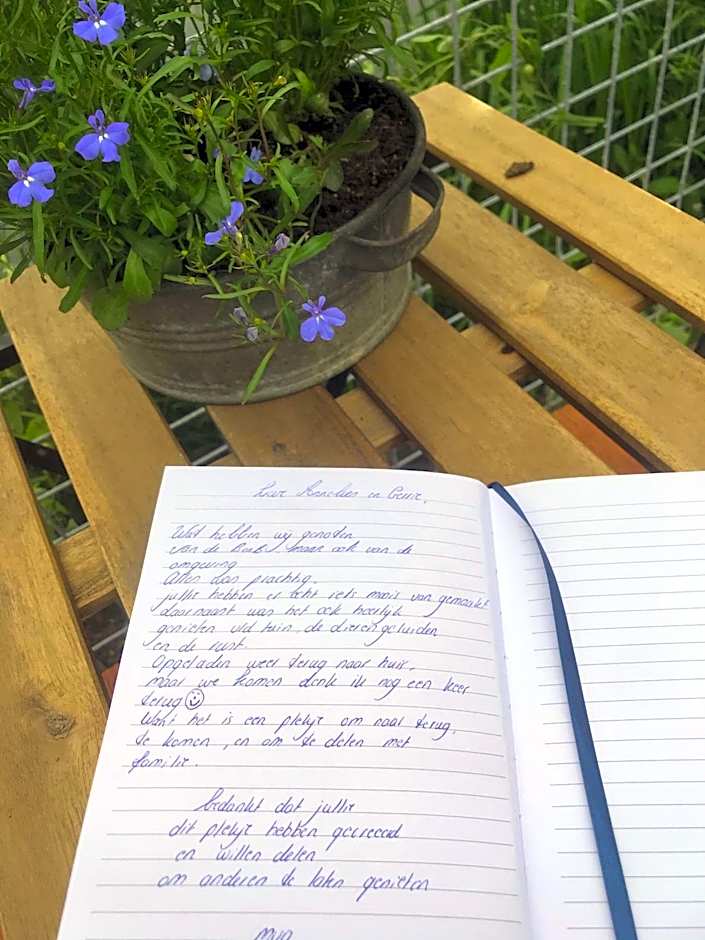 Lieve Annelies en Gerrie,
Wat hebben wij genoten
van de maar ook van de
omgeving
Alles dan prachtig.
jullie hebben er echt iets moois van gemaakt
daarnaast was het ook heerlijk
genieten v/d tuin, de dierengeluiden
en de rust.
Opgeladen weer terug naar huis,
maar we komen denk ik nog een keer
terug
Want het is een plekje om naar terug,
te komen, en om te delen met
familie.
bedankt dat jullie
dit plekje hebben gecreeerd
en willen delen
om anderen te laten genieten